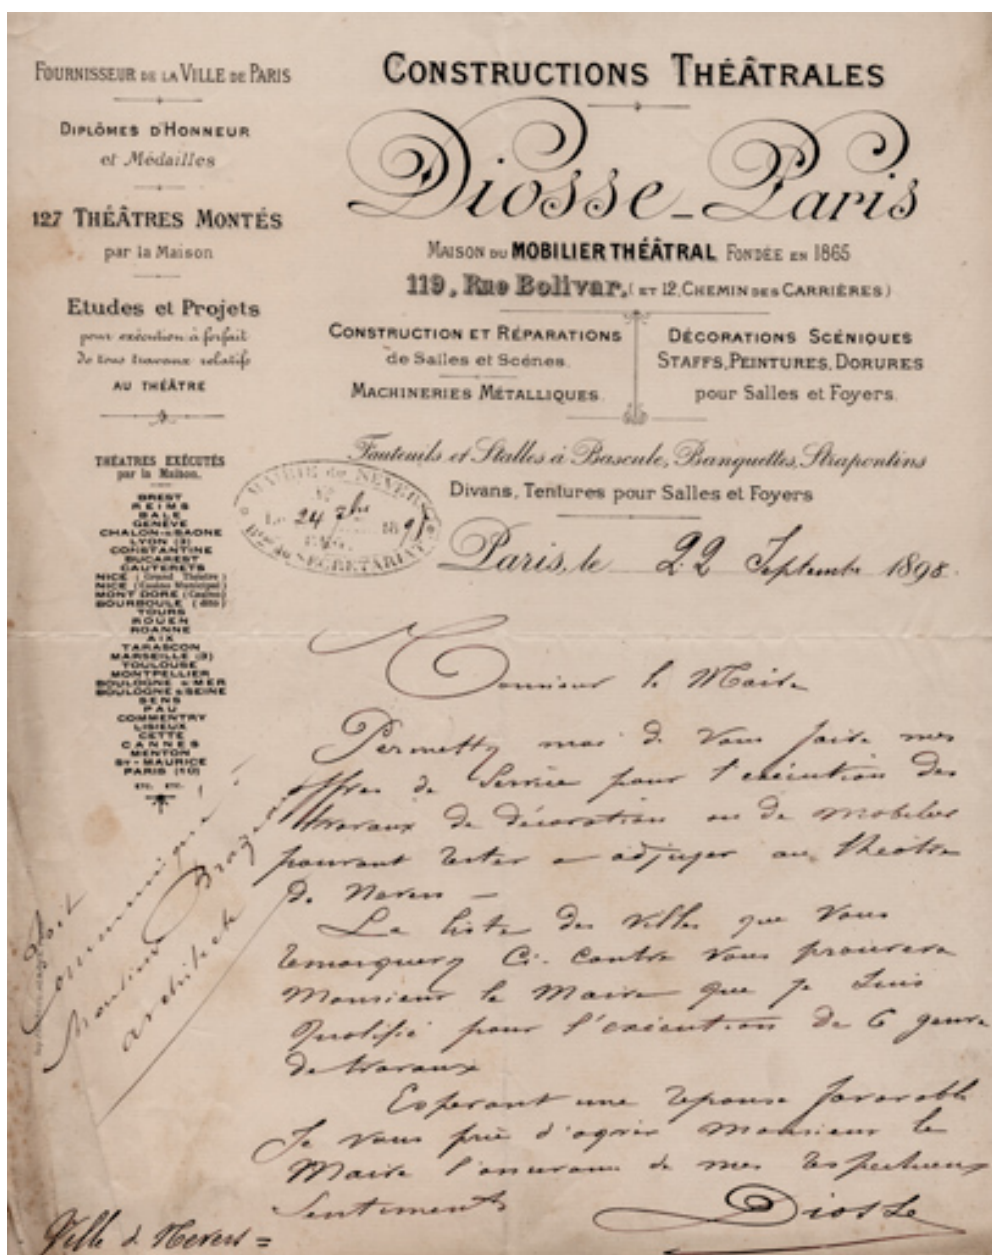 FOURNISSEUR DE LA VILLE DE PARIS
DIPLÔMES D'HONNEUR
et Médailles
127 THÉÂTRES MONTÉS
par la Maison
Etudes et Projets
pour exécution à forfait
de tous travaux relatifs
AU THÉÂTRE
THÉATRES EXÉCUTÉS
par la Maison.
BREST
REIMS
BALE
GENÈVE
CHALON-s-SAONE
LYON (3)
CONSTANTINE
BUCAREST
CAUTERETS
NICE (Grand Théâtre)
NICE (Casino Municipal)
MONT DORE (Casino)
BOURBOULE (dito)
TOURS
ROUEN
ROANNE
AIX
TARASCON
MARSEILLE (3)
TOULOUSE
MONTPELLIER
BOULOGNE s/MER
BOULOGNE s/SEINE
SENS
PAU
COMMENTRY
LISIEUX
CETTE
CANNES
MENTON
ST-MAURICE
PARIS (10)
ETC. ETC.
CONSTRUCTIONS THÉÂTRALES
Diosse-Paris
MAISON DU MOBILIER THÉÂTRAL FONDÉE EN 1865
119, Rue Bolivar, (ET 12, CHEMIN DES CARRIÈRES)
CONSTRUCTION ET RÉPARATIONS
de Salles et Scénes.
MACHINERIES MÉTALLIQUES.
DÉCORATIONS SCÉNIQUES
STAFFS, PEINTURES, DORURES
pour Salles et Foyers.
Fauteuils et Stalles à Bascule, Banquettes, Strapontins
Divans, Tentures pour Salles et Foyers
MAIRIE de NEVERS
Le 24 7bre 189
SECRÉTARIAT
Paris, le 22 Septembre 1898.
Monsieur le Maire
Permettez moi de Vous faire mes
offres de Service pour l'exécution des
travaux de décoration ou de mobilier
pouvant rester a adjuger au théâtre
de Nevers -
La liste des villes que Vous
remarquerez Ci-contre Vous prouvera
Monsieur le Maire que je Suis
Qualifié pour l'exécution de C genre
de travaux
Esperant une reponse favorable
Je vous prie d'agréer Monsieur le
Maire l'assurance de mes respectueux
Sentiments
Diosse
Soit
Communiqué à
Monsieur
architecte
Ville de Nevers =